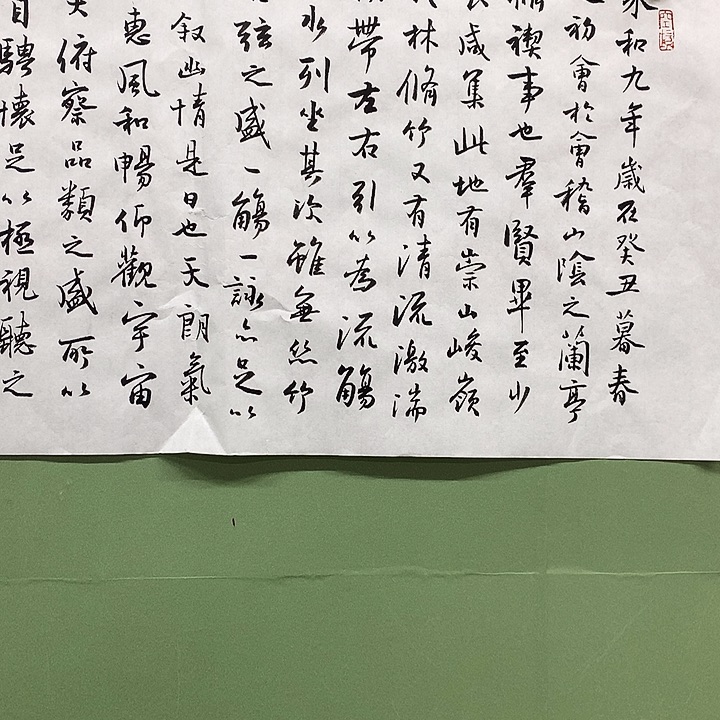 和九年歲在癸丑暮春
初會於會稽山陰之蘭亭
禊事也羣賢畢至少
咸集此地有崇山峻嶺
林脩竹又有清流激湍
帶左右引以為流觴
水列坐其次雖無絲竹
弦之盛一觴一詠亦足以
敘幽情是日也天朗氣
惠風和暢仰觀宇宙
俯察品類之盛所以
目騁懷足以極視聽之